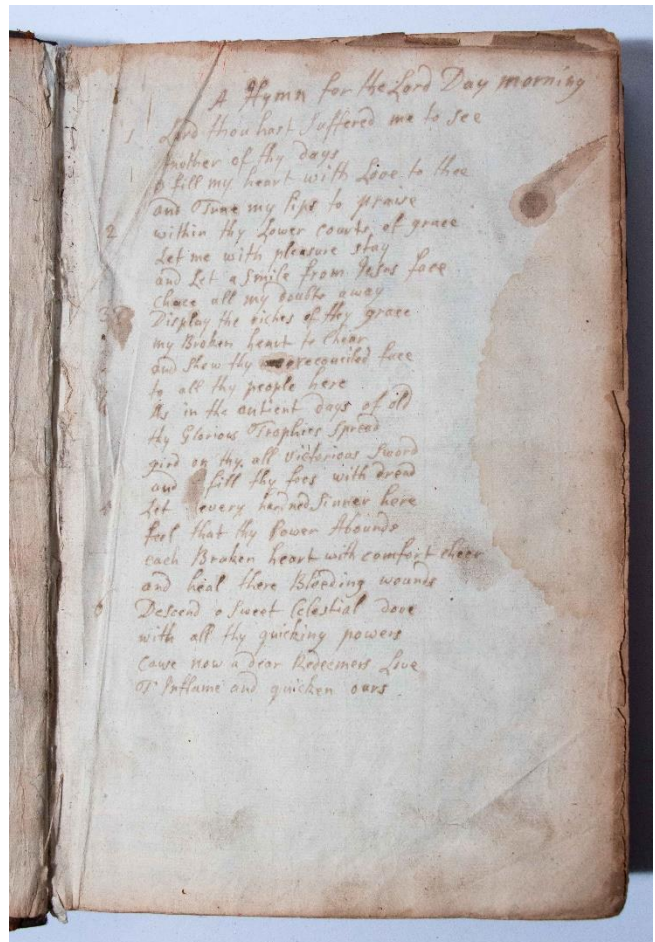 A Hymn for the Lord Day morning
1 Lord thou hast Suffered me to see
Another of thy days
o fill my heart with Love to thee
and Tune my lips to praise
2 within thy Lower courts of grace
Let me with pleasure stay
and Let a Smile from Jesus face
chace all my doubts away
3 Display the riches of thy grace
my Broken heart to Chear
and Shew thy reconciled face
to all thy people here
4 As in the antient days of old
thy Glorious Trophies Spread
gird on thy all victorious Sword
and fill thy foes with dread
Let every hardned Sinner here
feel that thy Power Abounds
each Broken heart with comfort cheer
and heal there Bleeding wounds
6 Descend o Sweet Celestial dove
with all thy quicking powers
Cause now a dear Redeemers Love
T Inflame and quicken ours